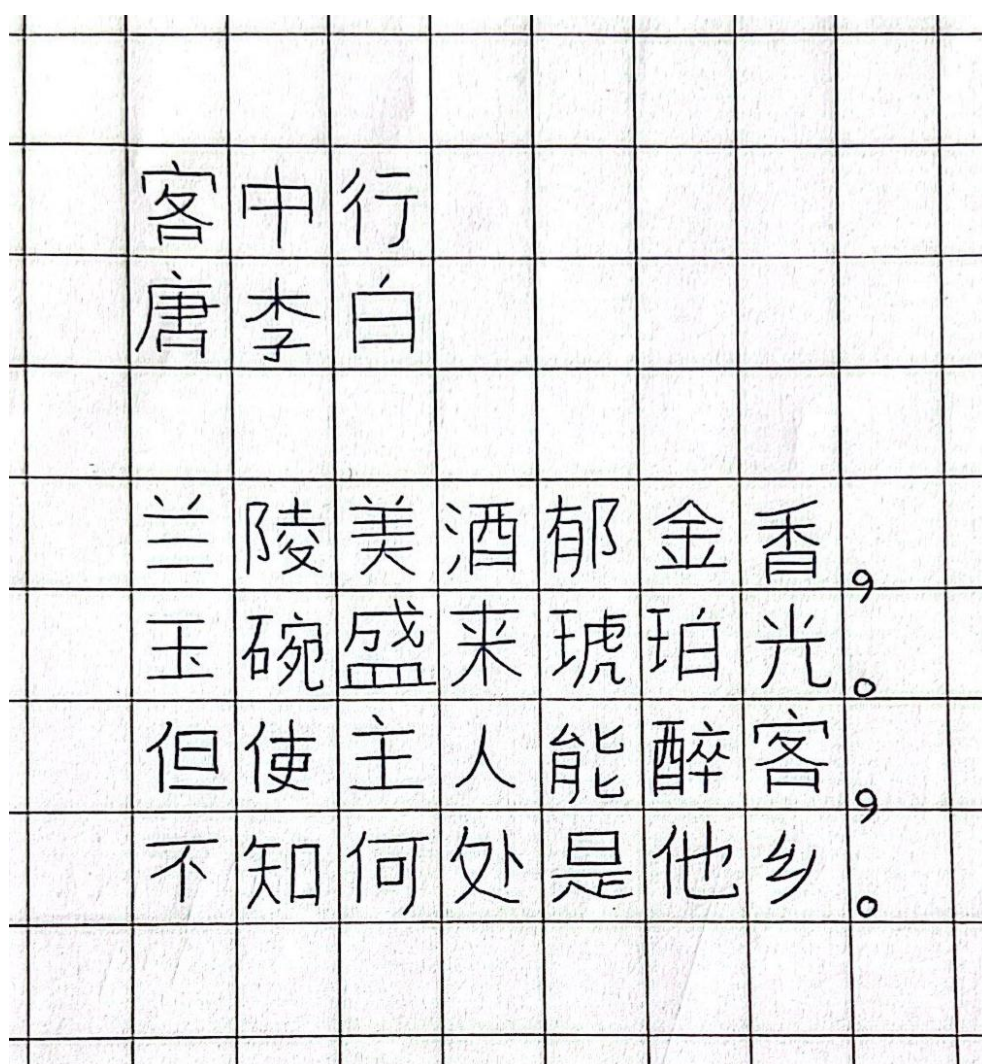 客中行
唐李白
兰陵美酒郁金香，
玉碗盛来琥珀光。
但使主人能醉客，
不知何处是他乡。